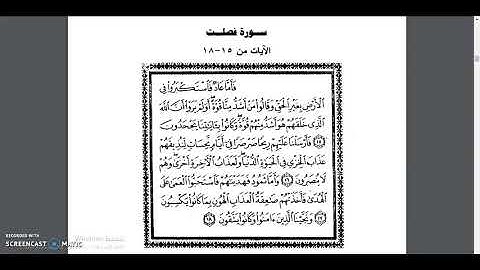 سورة فصلت
الآيات من ١٥-١٨
فَأَمَّا عَادٌ فَاسْتَكْبَرُوا فِي
الْأَرْضِ بِغَيْرِ الْحَقِّ وَقَالُوا مَنْ أَشَدُّ مِنَّا قُوَّةً أَوَلَمْ يَرَوْا أَنَّ اللَّهَ
الَّذِي خَلَقَهُمْ هُوَ أَشَدُّ مِنْهُمْ قُوَّةً وَكَانُوا بِآيَاتِنَا يَجْحَدُونَ
﴿١٥﴾ فَأَرْسَلْنَا عَلَيْهِمْ رِيحًا صَرْصَرًا فِي أَيَّامٍ نَحِسَاتٍ لِنُذِيقَهُمْ
عَذَابَ الْخِزْيِ فِي الْحَيَاةِ الدُّنْيَا وَلَعَذَابُ الْآخِرَةِ أَخْزَى وَهُمْ
لَا يُنْصَرُونَ ﴿١٦﴾ وَأَمَّا ثَمُودُ فَهَدَيْنَاهُمْ فَاسْتَحَبُّوا الْعَمَى عَلَى
الْهُدَى فَأَخَذَتْهُمْ صَاعِقَةُ الْعَذَابِ الْهُونِ بِمَا كَانُوا يَكْسِبُونَ
﴿١٧﴾ وَنَجَّيْنَا الَّذِينَ آمَنُوا وَكَانُوا يَتَّقُونَ ﴿١٨﴾
RECORDED WITH
SCREENCAST MATIC